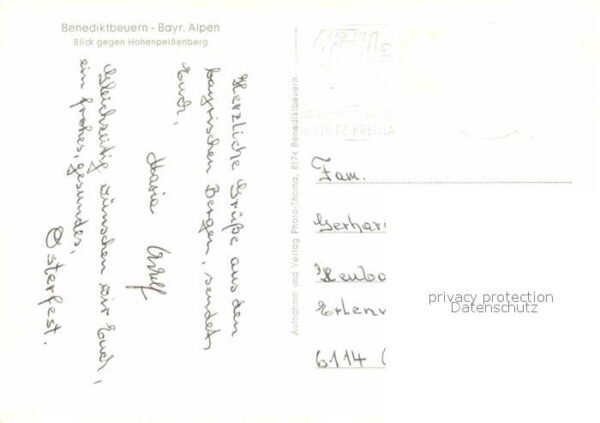 Benediktbeuern - Bayr. Alpen
Blick gegen Hohenpeißenberg
Herzliche Grüße aus den
bayrischen Bergen, sendet
Euch,
Maria
Gleichzeitig wünschen wir Euch,
ein frohes, gesundes,
Osterfest.
Aufnahme und Verlag Photo-Thoma, 8174 Benediktbeuern
Fam.
Gerhar
Erlenw
6114
privacy protection
Datenschutz